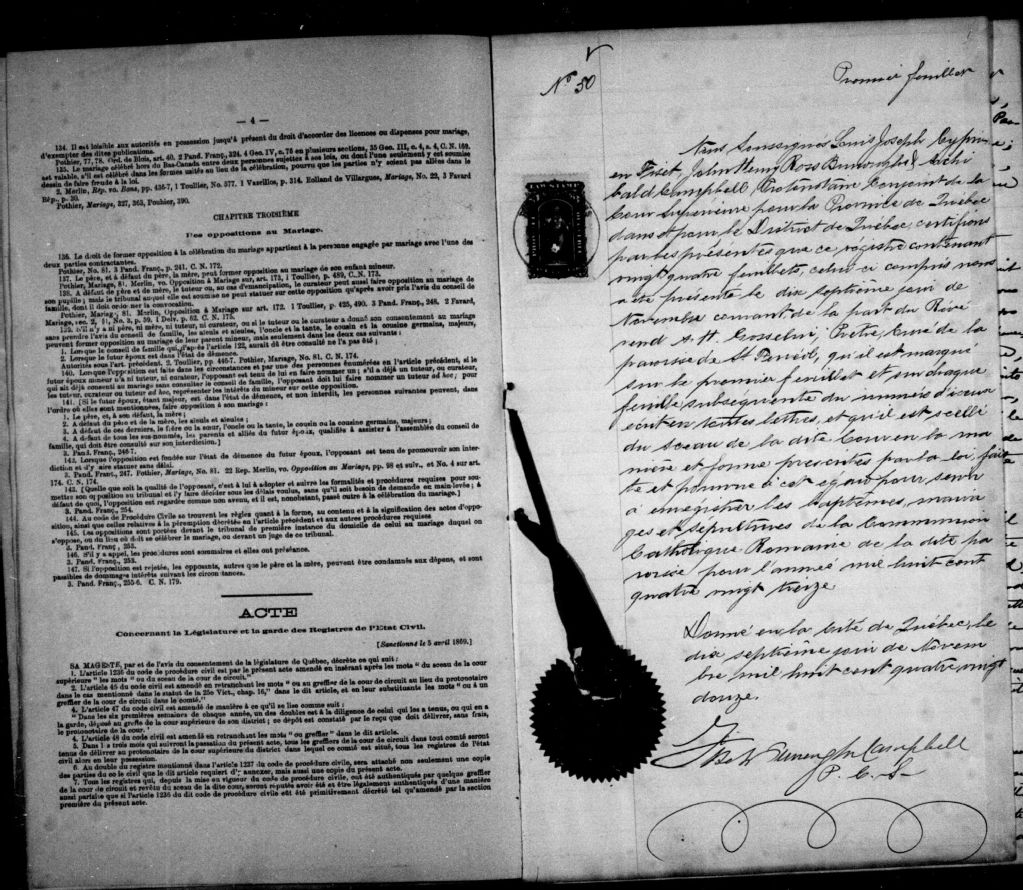 — 4 —
134. Il est loisible aux autorités en possession jusqu'à présent du droit d'accorder des licences ou dispenses pour mariage,
d'exempter des dites publications.
Pothier, 77, 78. Ord. de Blois, art. 40. 2 Pand. Franç., 324. 4 Geo. IV, c. 75 en plusieurs sections, 35 Geo. III, c. 4, s. 4, C. N. 169.
135. Le mariage célébré hors du Bas-Canada entre deux personnes sujettes à ses lois, ou dont l'une seulement y est soumise
est valable, s'il est célébré dans les formes usitées au lieu de la célébration, pourvu que les parties n'y soient pas allées dans le
dessin de faire fraude à la loi.
2. Merlin, Rép. vo. Bans, pp. 436-7, 1 Toullier, No. 577. 1 Vazeilles, p. 314. Rolland de Villargues, Mariage, No. 23, 3 Favard
Rép., p. 30.
Pothier, Mariage, 327, 363, Pouhier, 390.
CHAPITRE TROISIÈME
Des oppositions au Mariage.
136. Le droit de former opposition à la célébration du mariage appartient à la personne engagée par mariage avec l'une des
deux parties contractantes.
Pothier, No. 81. 3 Pand. Franç., p. 241. C. N. 172.
137. Le père, et à défaut du père, la mère, peut former opposition au mariage de son enfant mineur.
Pothier, Mariage, 81. Merlin, vo. Opposition à Mariage sur art. 173, 1 Toullier, p. 489, C. N. 173.
138. A défaut de père et de mère, le tuteur ou, au cas d'émancipation, le curateur peut aussi faire opposition au mariage de
son pupille; mais le tribunal auquel elle est soumise ne peut statuer sur cette opposition qu'après avoir pris l'avis du conseil de
famille, dont il doit ordonner la convocation.
Pothier, Mariag., 81. Merlin, Opposition à Mariage sur art. 172. 1 Toullier, p. 425, 490. 3 Pand. Franç., 248. 2 Favard,
Mariage, sec. 2, §1, No. 3, p. 59. 1 Delv. p. 62. C. N. 175.
139. S'il n'y a ni père, ni mère, ni tuteur, ni curateur, ou si le tuteur ou le curateur a donné son consentement au mariage
sans prendre l'avis du conseil de famille, les aïeuls et aïeules, l'oncle et la tante, le cousin et la cousine germains, majeurs,
peuvent former opposition au mariage de leur parent mineur, mais seulement dans les deux cas suivants:
1. Lorsque le conseil de famille qui, d'après l'article 122, aurait dû être consulté ne l'a pas été;
2. Lorsque le futur époux est dans l'état de démence.
Autorités sous l'art. précédent. 2 Toullier, pp. 446-7. Pothier, Mariage, No. 81. C. N. 174.
140. Lorsque l'opposition est faite dans les circonstances et par une des personnes énumérées en l'article précédent, si le
futur époux mineur n'a ni tuteur, ni curateur, l'opposant est tenu de lui en faire nommer un; s'il a déjà un tuteur, ou curateur,
qui ait déjà consenti au mariage sans consulter le conseil de famille, l'opposant doit lui faire nommer un tuteur ad hoc; pour
les tuteur, curateur ou tuteur ad hoc, représenter les intérêts du mineur sur cette opposition.
141. [Si le futur époux, étant majeur, est dans l'état de démence, et non interdit, les personnes suivantes peuvent, dans
l'ordre où elles sont mentionnées, faire opposition à son mariage:
1. Le père, et, à son défaut, la mère;
2. A défaut du père et de la mère, les aïeuls et aïeules;
3. A défaut de ces derniers, le frère ou la sœur, l'oncle ou la tante, le cousin ou la cousine germains, majeurs;
4. A défaut de tous les sus-nommés, les parents et alliés du futur époux, qualifiés à assister à l'assemblée du conseil de
famille, qui doit être consulté sur son interdiction.]
3. Pand. Franç., 246-7.
142. Lorsque l'opposition est fondée sur l'état de démence du futur époux, l'opposant est tenu de promouvoir son inter-
diction et d'y faire statuer sans délai.
3. Pand. Franç., 247. Pothier, Mariage, No. 81. 22 Rep. Merlin, vo. Opposition au Mariage, pp. 98 et suiv., et No. 4 sur art.
174. C. N. 174.
143. [Quelle que soit la qualité de l'opposant, c'est à lui à adopter et suivre les formalités et procédures requises pour sou-
mettre son opposition au tribunal et l'y faire décider sous les délais voulus, sans qu'il soit besoin de demande en main-levée; à
défaut de quoi, l'opposition est regardée comme non avenu, et il est, nonobstant, passé outre à la célébration du mariage.]
3. Pand. Franç., 254.
144. Au code de Procédure Civile se trouvent les règles quant à la forme, au contenu et à la signification des actes d'oppo-
sition, ainsi que celles relatives à la péremption décrétée en l'article précédent et aux autres procédures requises
145. Les oppositions sont portées devant le tribunal de première instance du domicile de celui au mariage duquel on
s'oppose, ou du lieu où doit se célébrer le mariage, ou devant un juge de ce tribunal.
3. Pand. Franç., 253.
146. S'il y a appel, les procédures sont sommaires et elles ont préséance.
3. Pand. Franç., 253.
147. Si l'opposition est rejetée, les opposants, autres que le père et la mère, peuvent être condamnés aux dépens, et sont
passibles de dommages intérêts suivant les circonstances.
3. Pand. Franç., 255-6. C. N. 179.
ACTE
Concernant la Législature et la garde des Registres de l'Etat Civil.
[Sanctionné le 5 avril 1869.]
SA MAGESTÉ, par et de l'avis du consentement de la législature de Québec, décrète ce qui suit:
1. L'article 1236 du code de procédure civil est par le présent acte amendé en insérant après les mots "du sceau de la cour
supérieure" les mots "ou du sceau de la cour de circuit."
2. L'article 45 du code civil est amendé en retranchant les mots "ou au greffier de la cour de circuit au lieu du protonotaire
dans le cas mentionnée dans le statut de la 25e Vict., chap. 16," dans le dit article, et en leur substituants les mots "ou à un
greffier de la cour de circuit dans le comté."
4. L'article 47 du code civil est amendé de manière à ce qu'il se lise comme suit:
"Dans les six premières semaines de chaque année, un des doubles est à la diligence de celui qui les a tenus, ou qui en a
la garde, déposé au greffe de la cour supérieure de son district; ce dépôt est constaté par le reçu que doit délivrer, sans frais,
le protonotaire de la cour.'
4. L'article 48 du code civil est amendé en retranchant les mots "ou greffier" dans le dit article.
5. Dans les trois mois qui suivront la passation du présent acte, tous les greffiers de la cour de circuit dans tout comté seront
tenus de délivrer au protonotaire de la cour supérieure du district dans lequel ce comté est situé, tous les registres de l'état
civil alors en leur possession.
6. Au double du registre mentionné dans l'article 1237 du code de procédure civile, sera attaché non seulement une copie
des parties du code civil que le dit article requiert d'y annexer, mais aussi une copie du présent acte.
7. Tous les registres qui, depuis la mise en vigueur du code de procédure civile, ont été authentiqués par quelque greffier
de la cour de circuit et revêtu du sceau de la dite cour, seront réputés avoir été et être légalement authentiqués d'une manière
aussi parfaite que si l'article 1236 du dit code de procédure civile eût été primitivement décrété tel qu'amendé par la section
première du présent acte.
No 50
Premier feuillet
Nous Soussignés Louis Joseph Cyprien
Fiset, John Henry Ross Burroughs & Archi
bald Campbell Protonotaire Conjoint de la
Cour Supérieure pour la Province de Québec
dans et pour le District de Québec, certifions
par les présentes que ce registre contenant
vingt quatre feuillets, celui ci compris nous
a été présenté le dix septième jour de
Novembre courant de la part du Révé
rend A. H. Gosselin, Prêtre, Curé de la
paroisse de St Féréol, qu'il est marqué
sur le premier feuillet et sur chaque
feuillet subséquent du numéro d'icelui
écrit en toutes lettres, et qu'il est scellé
du sceau de la dite Cour en la ma
nière et forme prescrites par la loi, fai
te et pourvue à cet égard pour servir
à enregistrer les baptêmes, maria
ges et sépultures de la Communion
Catholique Romaine de la dite pa
roisse pour l'année mil huit cent
quatre vingt treize
Donné en la Cité de Québec, le
dix septième jour de Novem
bre mil huit cent quatre vingt
douze.
Fiset Burroughs Campbell
P. C. S.